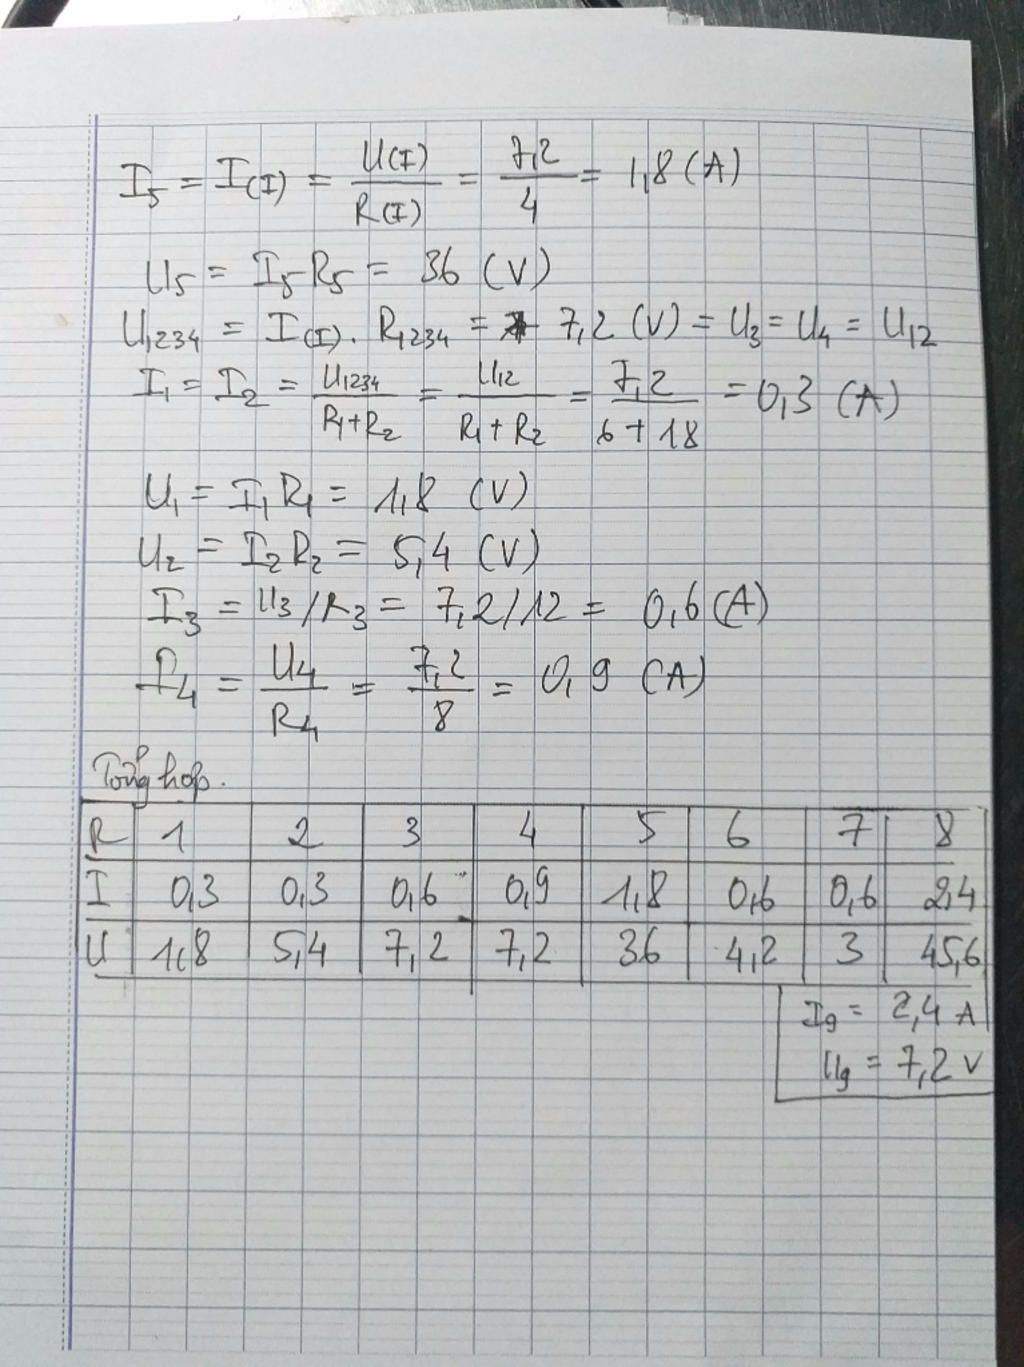 I₅ = I(I) = U(I)/R(I) = 7,2/4 = 1,8 (A)
U₅ = I₅R₅ = 36 (V)
U₁₂₃₄ = I(I). R₁₂₃₄ = 7,2 (V) = U₃ = U₄ = U₁₂
I₁ = I₂ = U₁₂₃₄/R₁+R₂ = U₁₂/R₁+R₂ = 7,2/6+18 = 0,3 (A)
U₁ = I₁R₁ = 1,8 (V)
U₂ = I₂R₂ = 5,4 (V)
I₃ = U₃/R₃ = 7,2/12 = 0,6 (A)
I₄ = U₄/R₄ = 7,2/8 = 0,9 (A)
Tổng hợp.
R 1 2 3 4 5 6 7 8
I 0,3 0,3 0,6 0,9 1,8 0,6 0,6 2,4
U 1,8 5,4 7,2 7,2 36 4,2 3 45,6
I₉ = 2,4 A
U₉ = 7,2 V